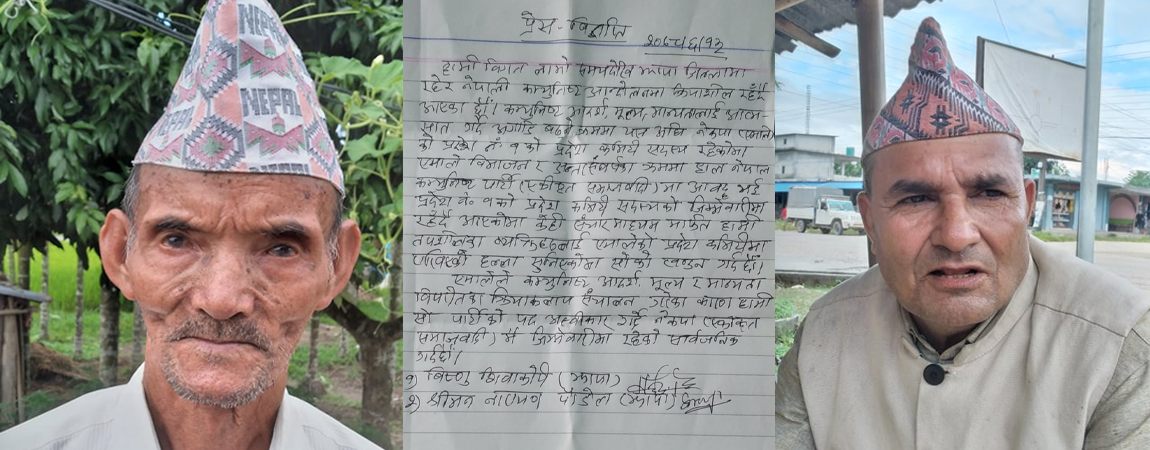 NEPAL
NEPAL
प्रेस-विज्ञप्ति
२०७८/६/१३
हामी विगत लामो समयदेखि झापा जिल्लामा
रहेर नेपाली कम्युनिष्ट आन्दोलनमा क्रियाशील रहँदै
आएका छौं। कम्युनिष्ट आदर्श, मूल्य, मान्यतालाई आत्म-
सात गर्दै अगाडि बढ्ने क्रममा यस अघि नेकपा (एमाले)
को प्रदेश नं. १ को प्रदेश कमिटी सदस्य रहेकोमा
एमाले विभाजन र अन्तरसंघर्षका क्रममा हाल नेपाल
कम्युनिष्ट पार्टी (एकीकृत समाजवादी) मा आवद्ध भई
प्रदेश नं. १ को प्रदेश कमिटी सदस्यको जिम्मेवारीमा
रहँदै आएकोमा केही संचार माध्यम मार्फत हामी
तपशीलका व्यक्तिहरुलाई एमालेको प्रदेश कमिटीमा
हल्ला सुनिएकोमा सोको खण्डन गर्दछौं।
एमालेले कम्युनिष्ट आदर्श, मूल्य र मान्यता
विपरितका क्रियाकलाप संचालन गरेका कारण हामी
सो पार्टीको पद अस्वीकार गर्दै नेकपा (एकीकृत
समाजवादी) मै जिम्मेवारीमा रहेको सार्वजनिक
गर्दछौं।
१) विष्णु सिवाकोटी (झापा)
२) श्रीमन नारायण पौडेल (झापा)